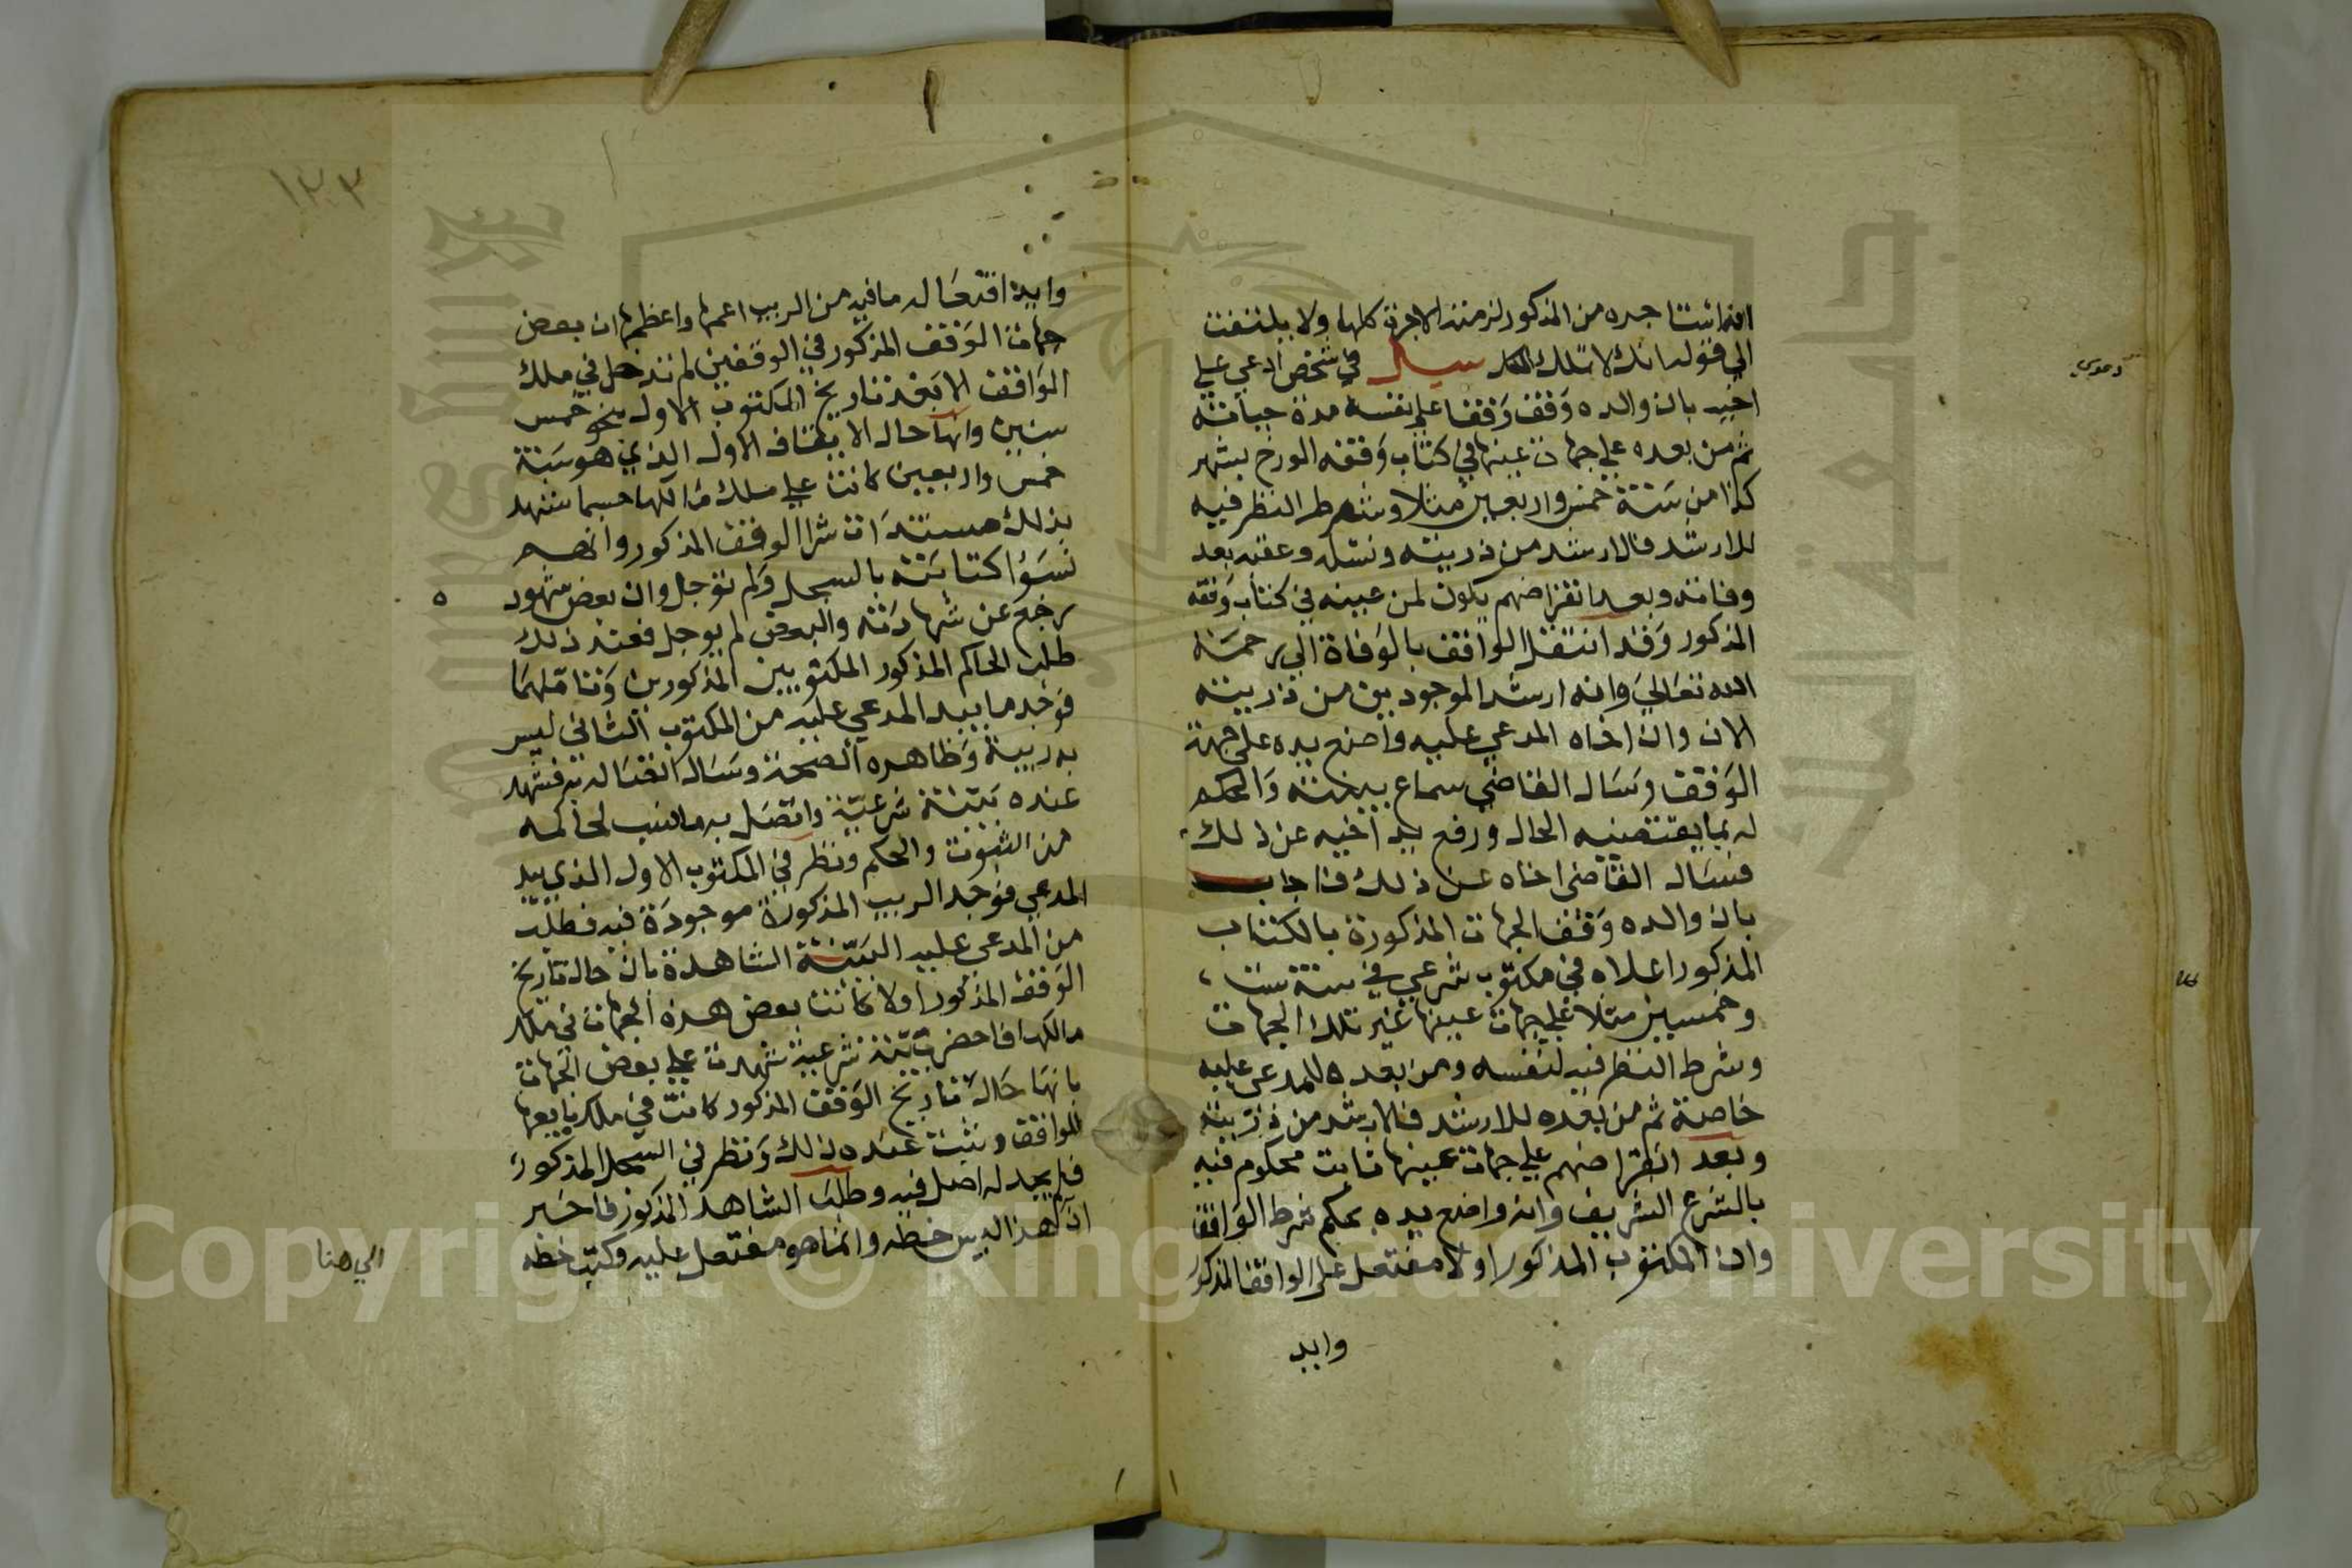 انما استاجره من المذكور لزمته الاجرة كلها ولا يلتفت
الي قوله انك لا تملك سيل في شخص ادعي علي
اخيه بان والده وقف وقفا علي نفسه مدة حياته
ثم من بعده علي جهات عينها في كتاب وقفه المورخ بشهر
كذا من سنة خمس واربعين مثلا وشرط النظر فيه
للارشد فالارشد من ذريته ونسله وعقبه بعد
وفاته وبعد انقراضهم يكون لمن عينه في كتاب وقفه
المذكور وقد انتقل الواقف بالوفاة الي رحمة
الله تعالي وانه ارشد الموجودين من ذريته
الان وان اخاه المدعي عليه واضع يده علي جهة
الوقف وسال القاضي سماع بينته والحكم
له بما يقتضيه الحال ورفع يد اخيه عن ذلك
فسال القاضي اخاه عن ذلك فاجاب
بان والده وقف الجهات المذكورة بالكتاب
المذكور اعلاه في مكتوب شرعي في سنة ست
وخمسين مثلا علي جهات عينها غير تلك الجهات
وشرط النظر فيه لنفسه ومن بعده للمدعي عليه
خاصة ثم من بعده للارشد فالارشد من ذريته
وبعد انقراضهم علي جهات عينها ثابت محكوم فيه
بالشرع الشريف وانه واضع يده بحكم شرط الواقف
وان المكتوب المذكور اولا مفتعل علي الواقف المذكور
وايد
دعوي
وايد افتعاله ما فيه من الريب اعمها واعظمها ان بعض
جهات الوقف المذكور في الوقفين لم تدخل في ملك
الواقف الا بعد تاريخ المكتوب الاول بنحو خمس
سنين وانها حال الايقاف الاول الذي هو سنة
خمس واربعين كانت علي ملك ملاكها حسبما شهد
بذلك مستندات شرا الوقف المذكور وانهم
نسوا كتابته بالسجل ولم توجد وان بعض شهوده
رجع عن شهادته والبعض لم يوجد فعند ذلك
طلب الحاكم المذكور المكتوبين المذكورين وتاملهما
فوجد ما بيد المدعي عليه من المكتوب الثاني ليس
به ريبة وظاهره الصحة وسال اتصاله به فشهد
عنده بينة شرعية واتصل به ما نسب لحاكمه
من الثبوت والحكم ونظر في المكتوب الاول الذي بيد
المدعي فوجد الريب المذكورة موجودة فيه فطلب
من المدعي عليه البينة الشاهدة بان حال تاريخ
الوقف المذكور اولا كانت بعض هذه الجهات في ملك
مالكها فاحضر بينة شرعية شهدت علي بعض الجهات
بانها حالة تاريخ الوقف المذكور كانت في ملك بايعها
للواقف وثبت عنده ذلك ونظر في السجل المذكور
فلم يجد له اصل فيه وطلب الشاهد المذكور فاخبر
ان هذا ليس خطه وانما هو مفتعل عليه وكتب خطه
الي هنا
١٢٣